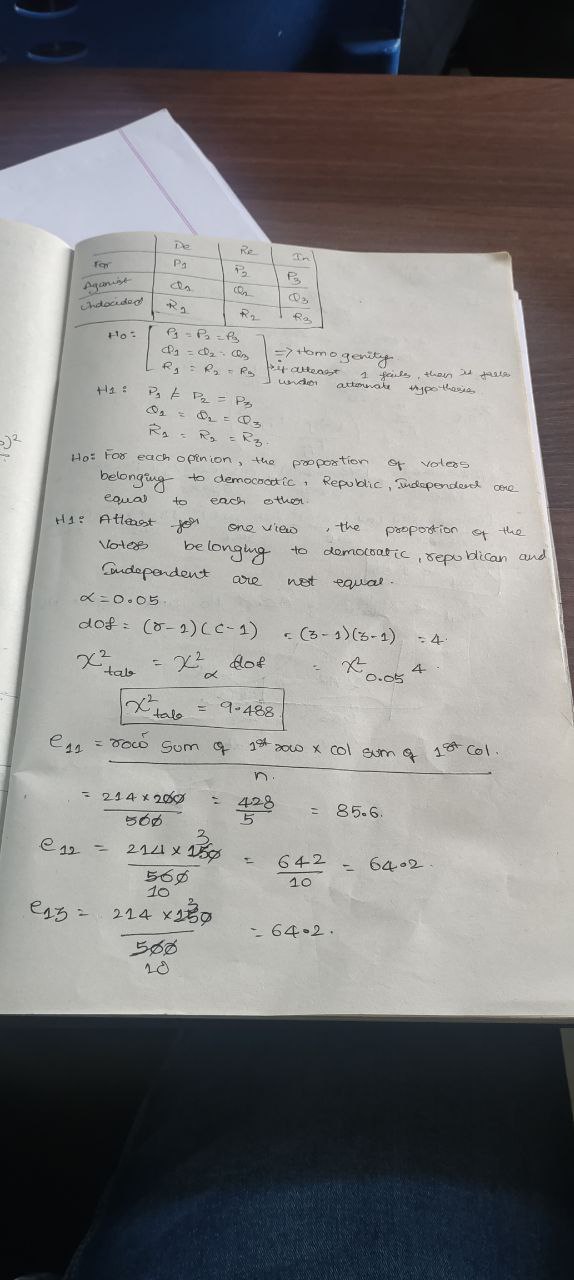 De Re In
For P1 P2 P3
Aganist Q1 Q2 Q3
Undecided R1 R2 R3
H0: [ P1 = P2 = P3
Q1 = Q2 = Q3 => Homogenity
R1 = R2 = R3 ] if atleast 1 fails, then it fails
under alternate Hypothesis.
H1: P1 ≠ P2 = P3
Q1 = Q2 = Q3
R1 = R2 = R3.
H0: For each opinion, the propostion of voters
belonging to democratic, Republic, Independend are
equal to each other.
H1: Atleast for one view, the propostion of the
Voters belonging to democratic, republican and
Independent are not equal.
α = 0.05.
dof = (r-1)(c-1) = (3-1)(3-1) = 4.
χ²tab = χ²α dof = χ²0.05 4.
χ²tab = 9.488
e11 = row sum of 1st row x col sum of 1st col.
n.
= 214 x 200 / 500 = 428 / 5 = 85.6.
e12 = 214 x 150 3 / 500 10 = 642 / 10 = 64.2.
e13 = 214 x 150 3 / 500 10 = 64.2.